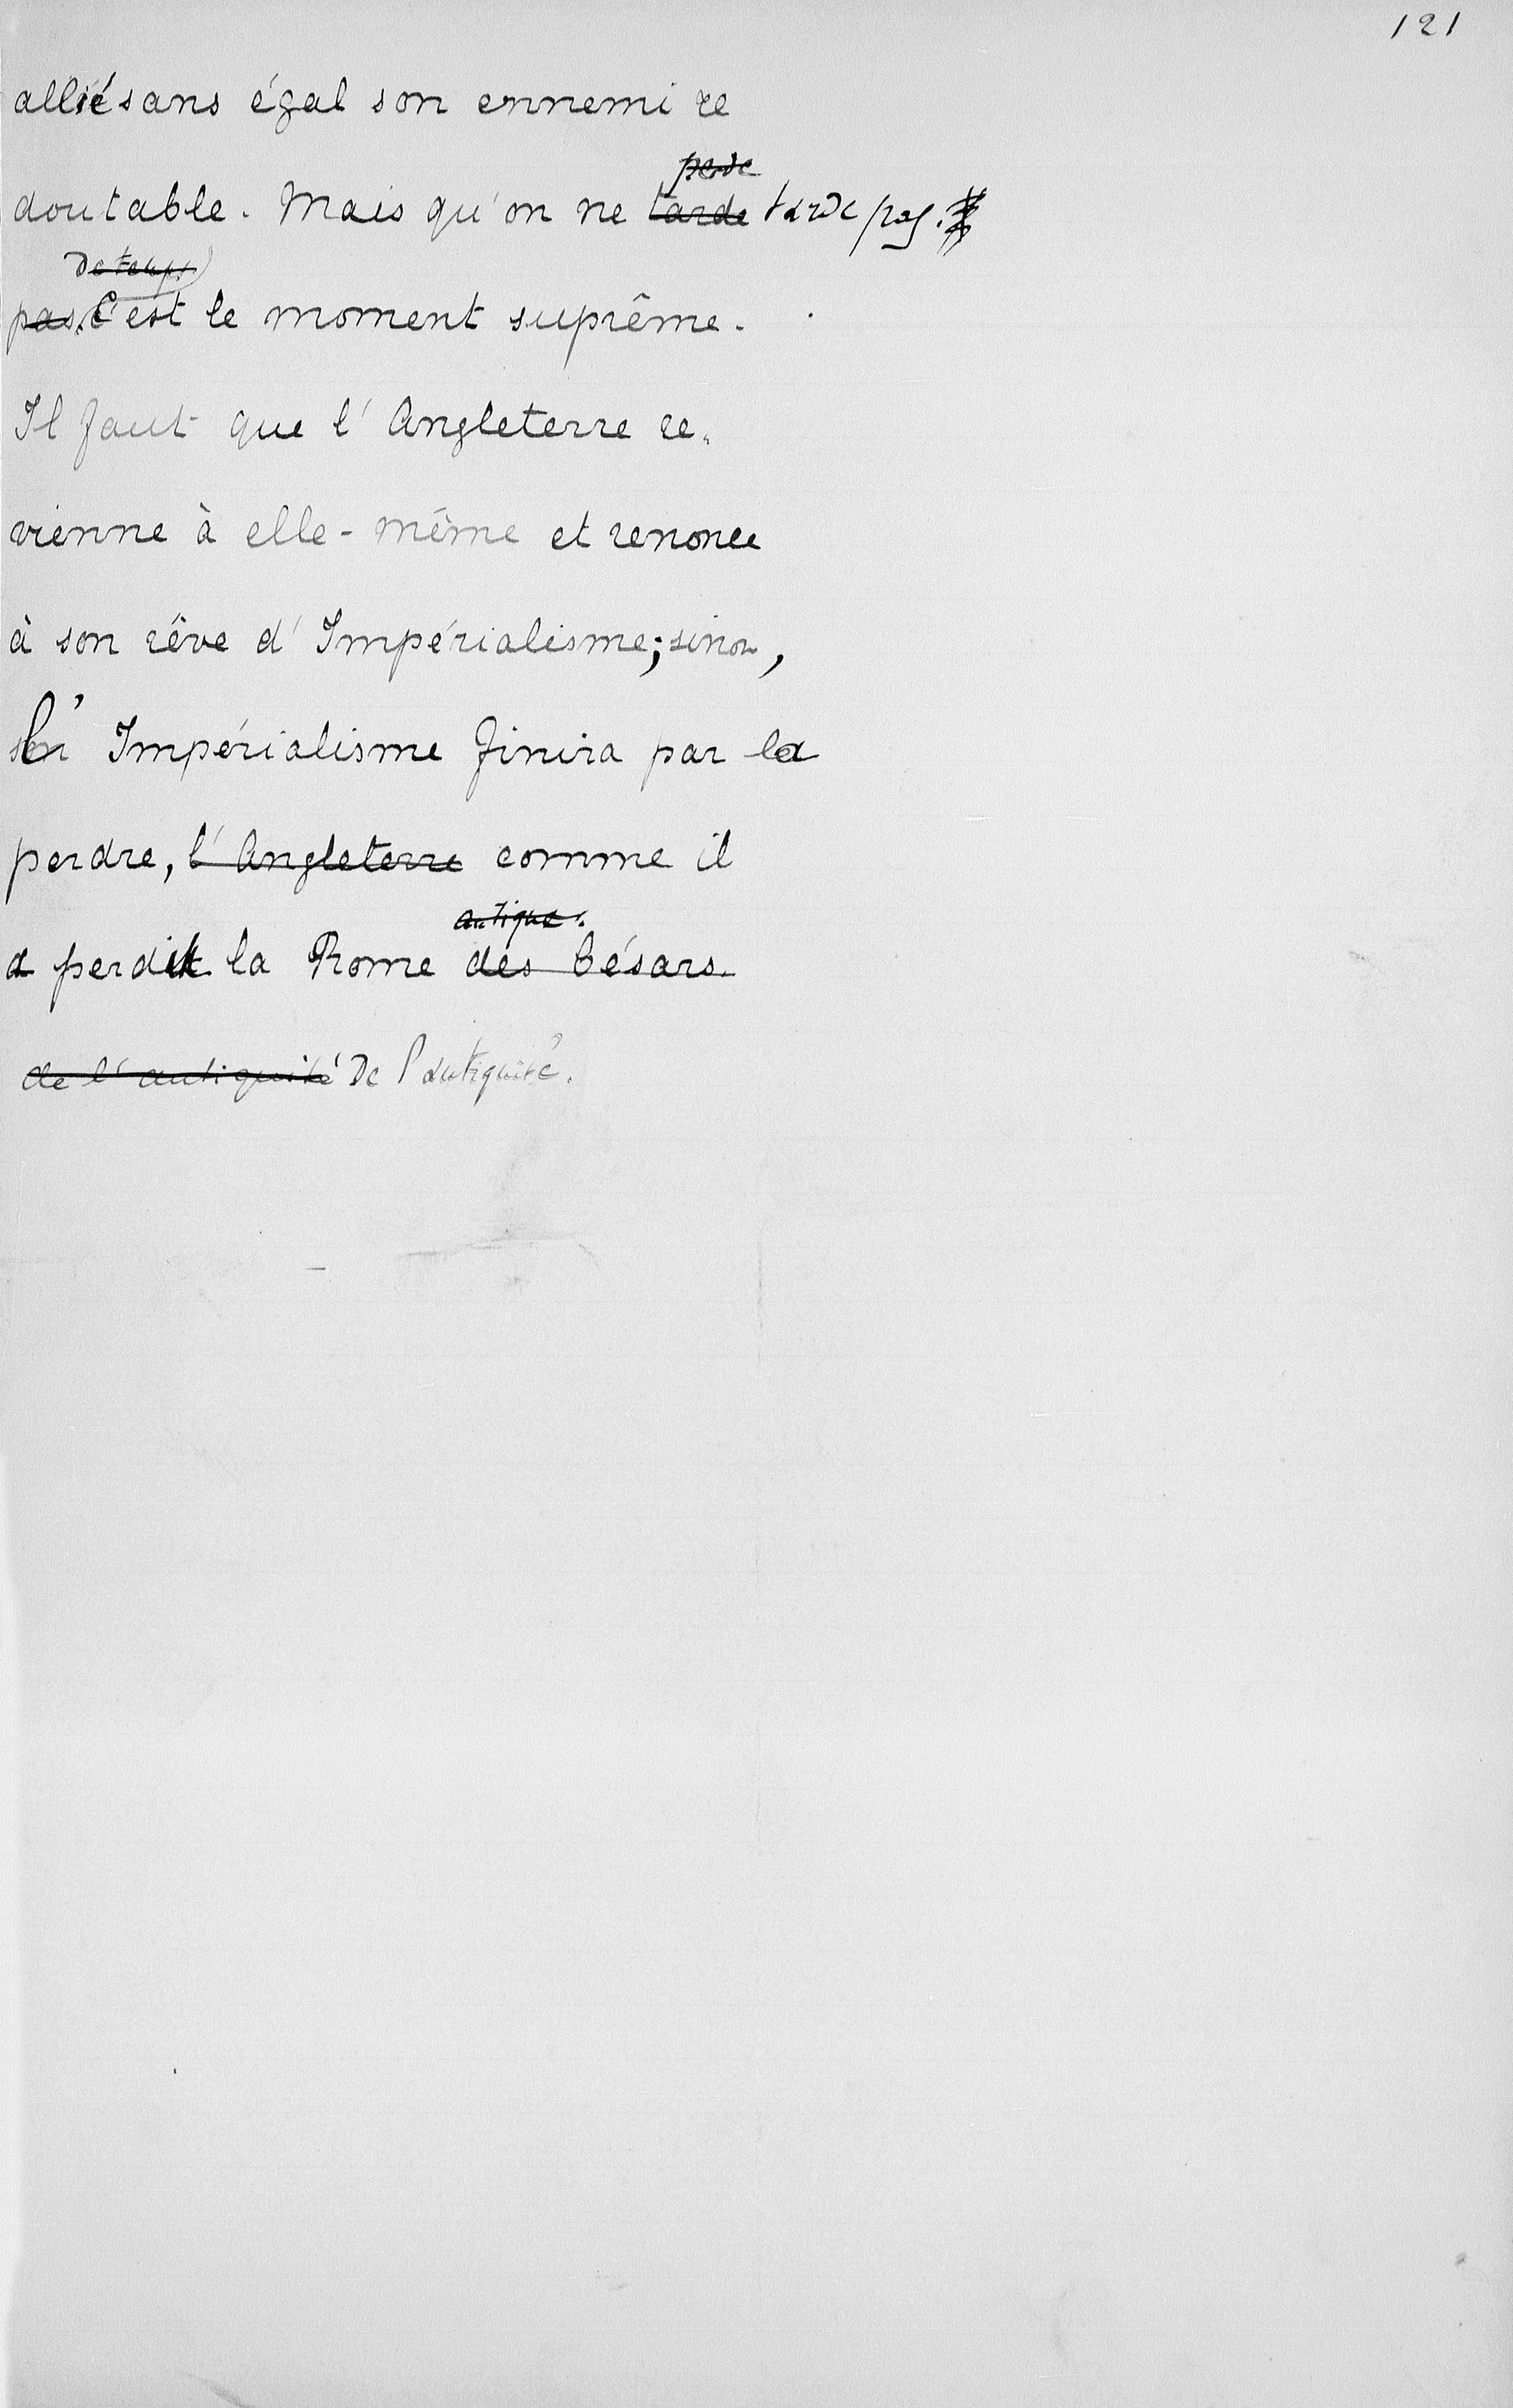 121
allié sans égal son ennemi re
perde
doutable. Mais qu'on ne tarde tarde pas.
de temps
pas. C'est le moment suprême.
Il faut que l'Angleterre re-
vienne à elle-même et renonce
à son rêve d'Impérialisme; sinon,
l'Impérialisme finira par la
perdre, l'Angleterre comme il
antique.
a perdit la Rome des Césars.
de l'antiquité De l'antiquité.